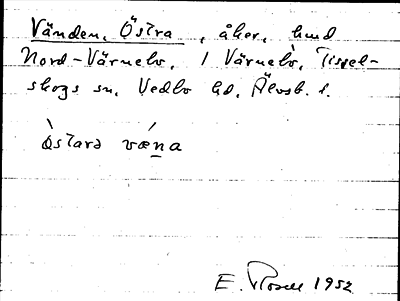 Vänden, Östra, åker, hmd
Nord-Värnebo, i Värnebo, Tissel-
skogs sn, Vedbo hd, Älvsb. l.
òstarə vǽna
E. Rosell 1952